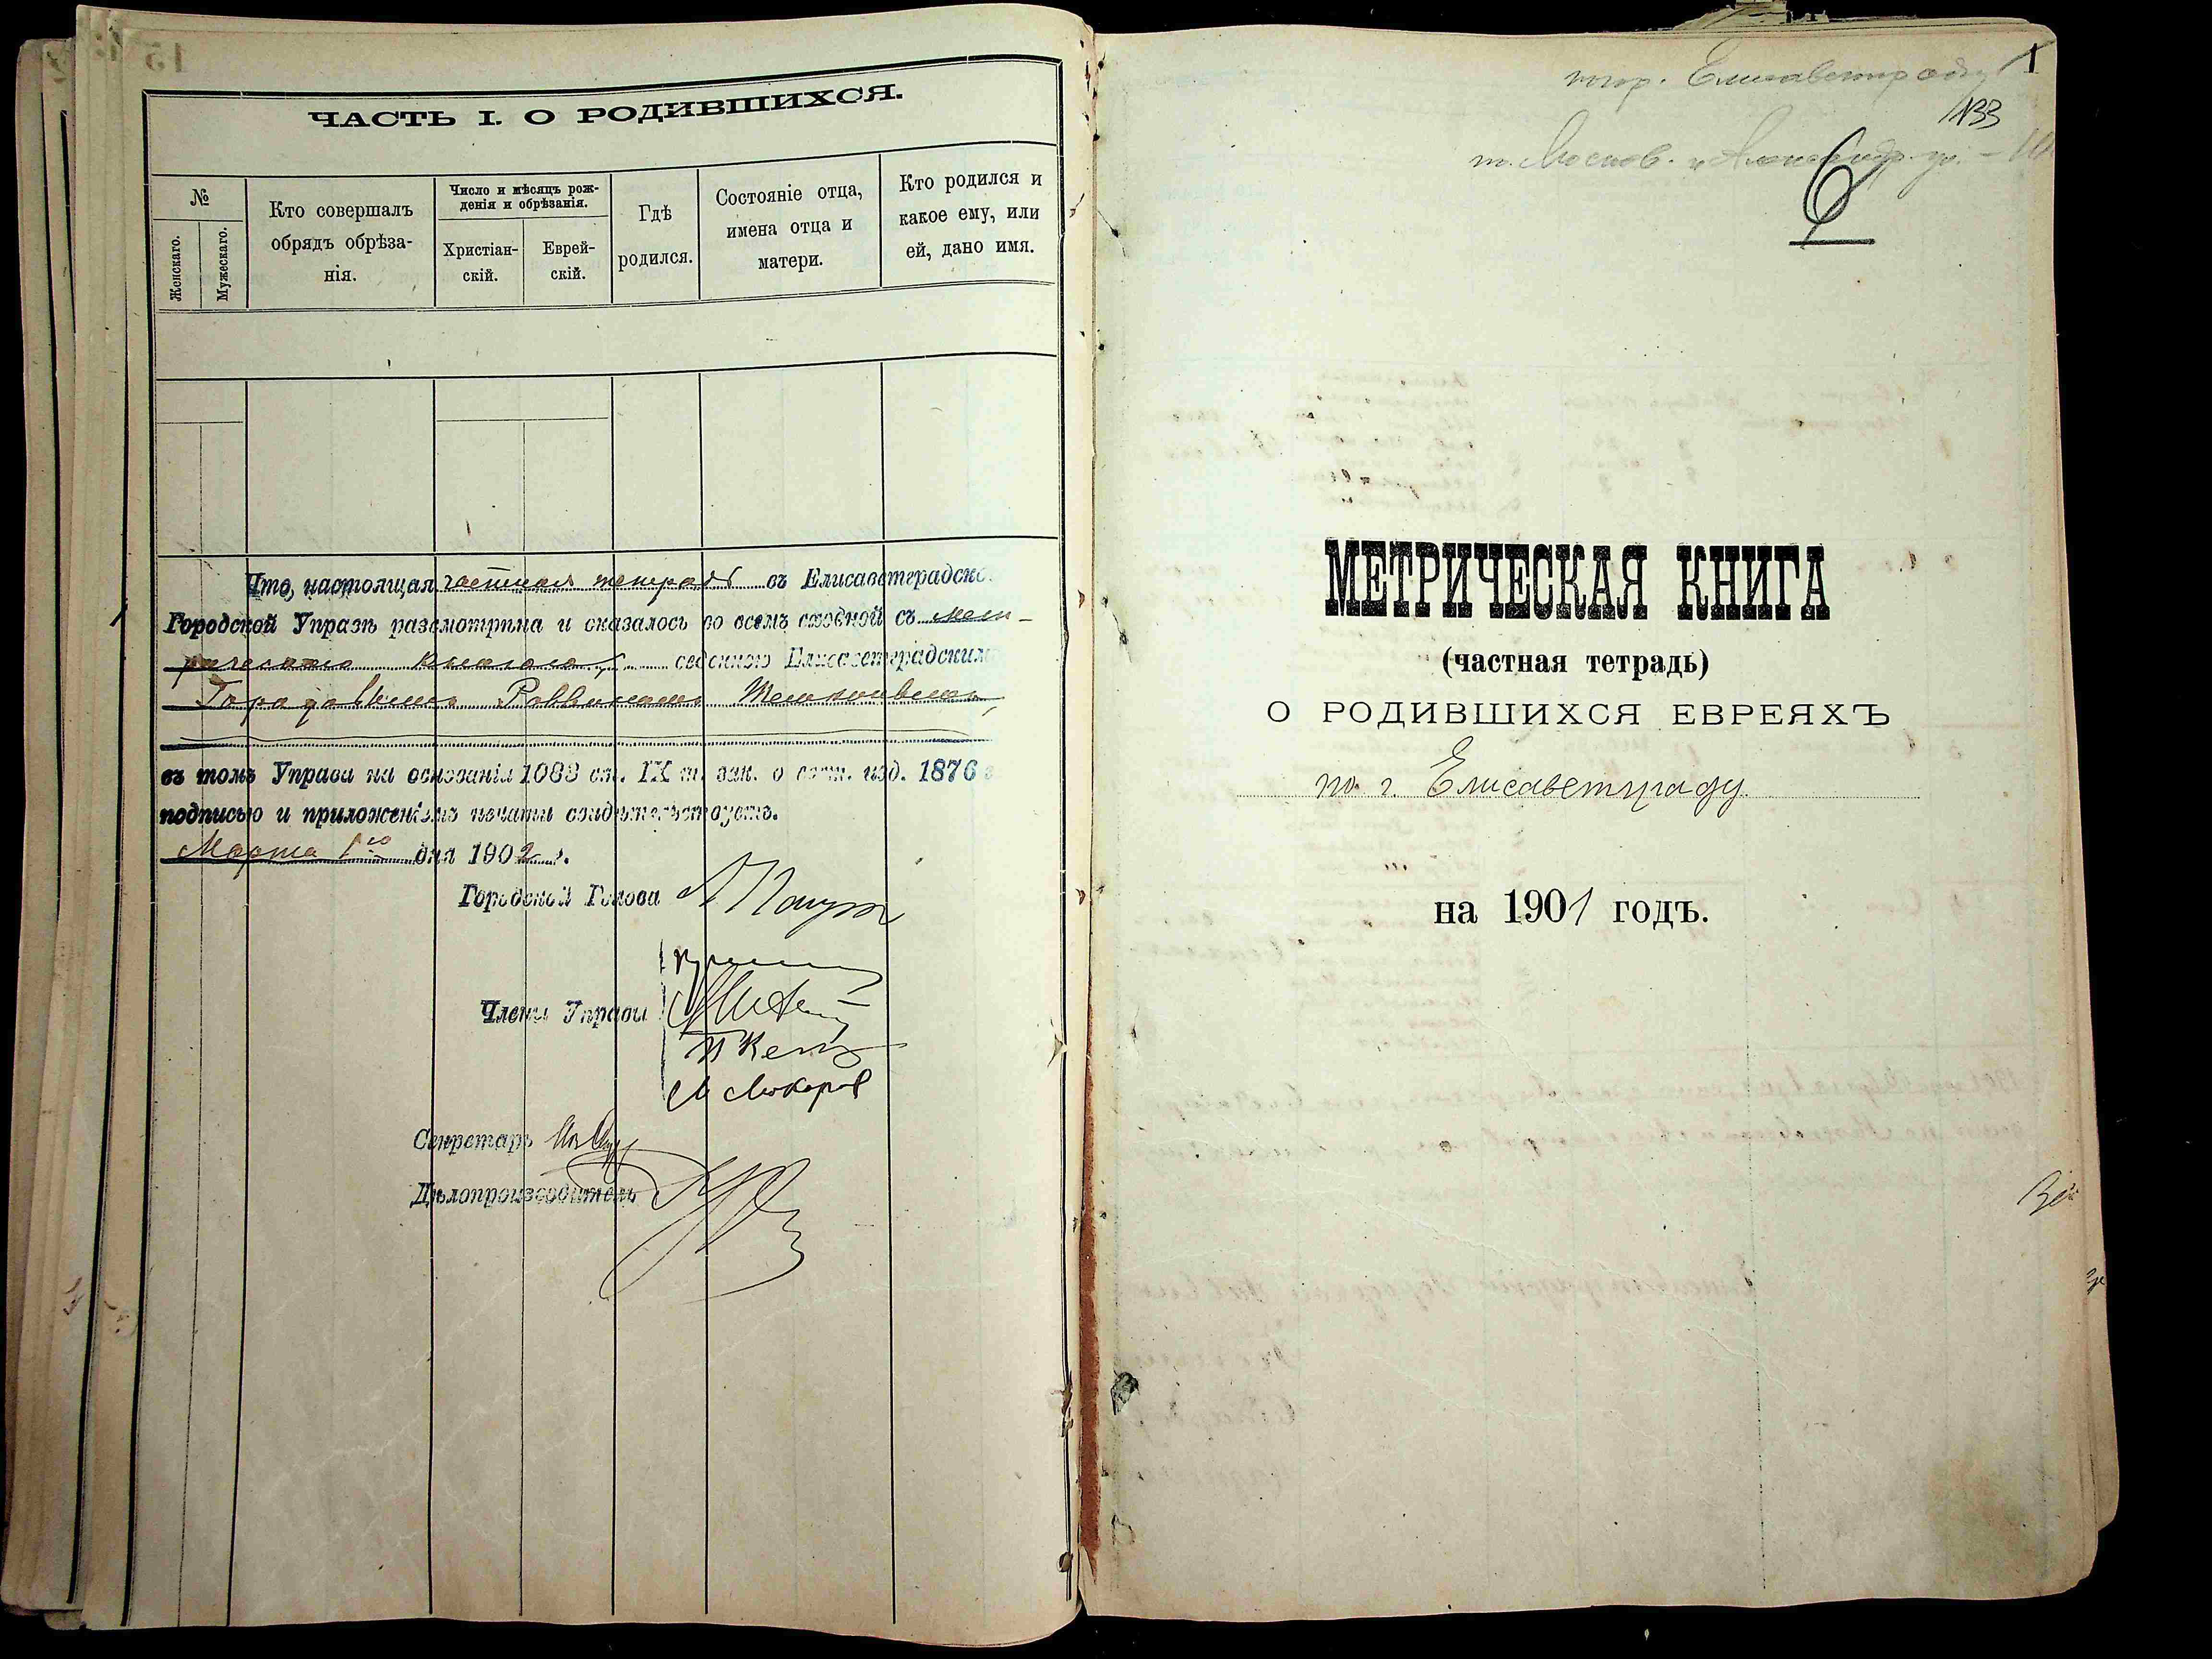 ЧАСТЬ I. О РОДИВШИХСЯ.
№
Женскаго.
Мужескаго.
Кто совершалъ
обрядъ обрѣза-
нія.
Число и мѣсяцъ рож-
денія и обрѣзанія.
Христіан-
скій.
Еврей-
скій.
Гдѣ
родился.
Состояніе отца,
имена отца и
матери.
Кто родился и
какое ему, или
ей, дано имя.
Что, настоящая частная тетрадь въ Елисаветградско
Городской Управѣ разсмотрѣна и оказалось во всемъ сходной съ мет-
рическою книгою, веденною Елисаветградским
Городовымъ Раввиномъ
въ томъ Управа на основаніи 1083 ст. IX т. зак. о сост. изд. 1876 г
подписью и приложеніемъ печати свидѣтельствуетъ.
Марта 1го дня 1902 г.
Городской Голова
Члены Управы
П Кет
Л Макаров
Секретарь
Дѣлопроизводитель
15
1
гор. Елисаветграду
133
6
МЕТРИЧЕСКАЯ КНИГА
(частная тетрадь)
О РОДИВШИХСЯ ЕВРЕЯХЪ
по г. Елисаветграду.
на 1901 годъ.